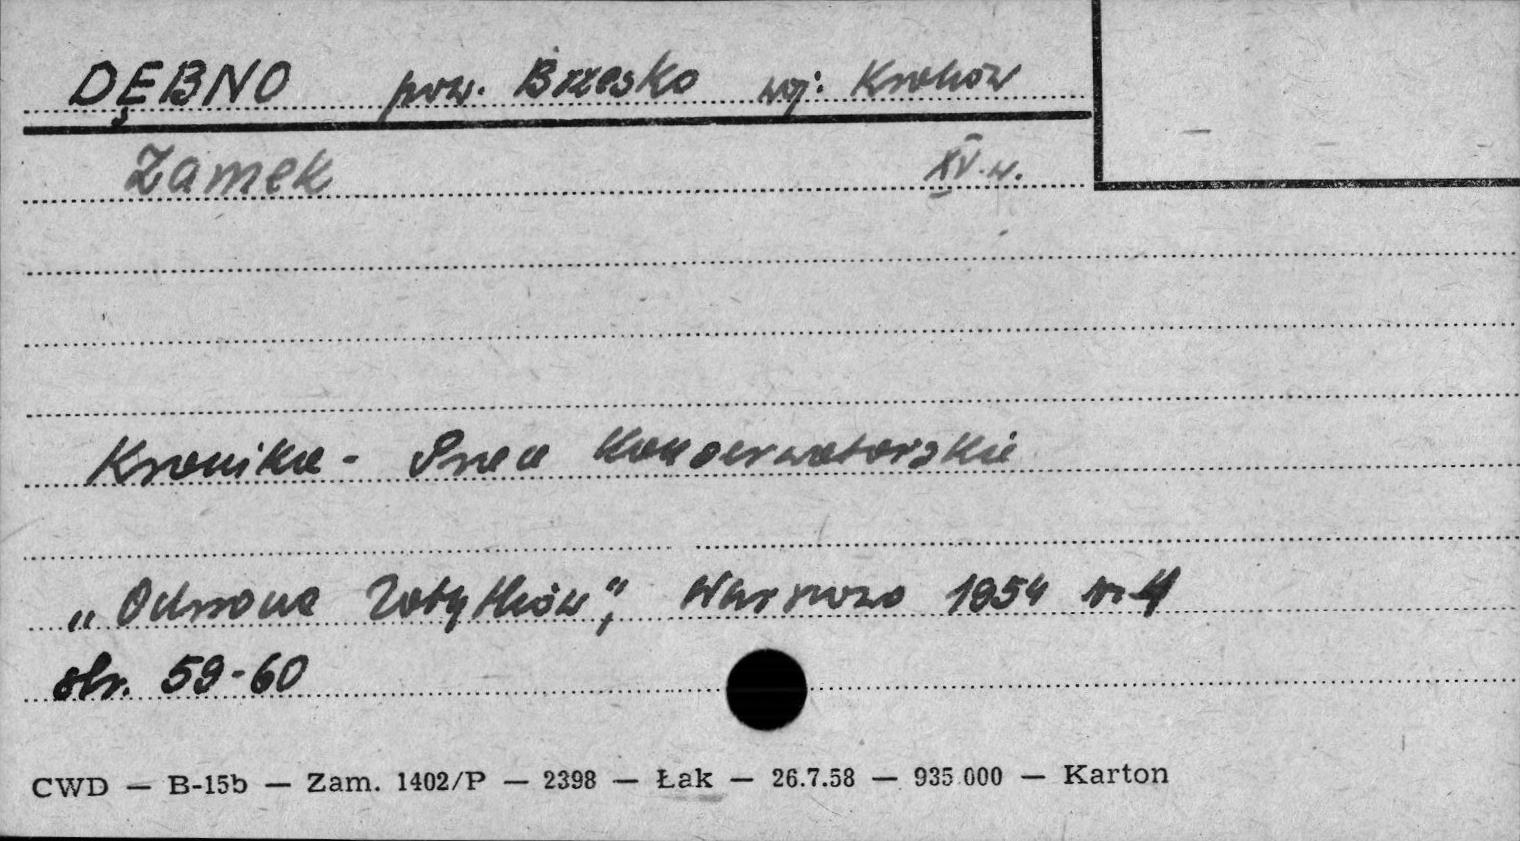 DĘBNO pow. Brzesko woj: Kraków
Zamek XV w.
Kronika - Prace Konserwatorskie
„Ochrona Zabytków", Warszawa 1954 nr 4
str. 59-60
CWD — B-15b — Zam. 1402/P — 2398 — Łak — 26.7.58 — 935 000 — Karton